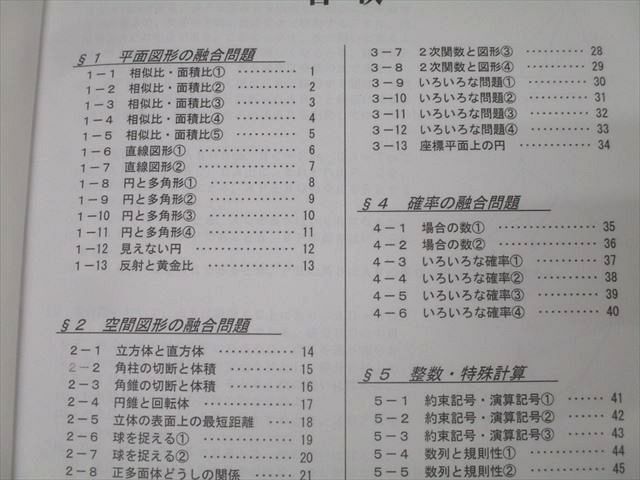 §1 平面図形の融合問題
1-1 相似比・面積比① ………… 1
1-2 相似比・面積比② ………… 2
1-3 相似比・面積比③ ………… 3
1-4 相似比・面積比④ ………… 4
1-5 相似比・面積比⑤ ………… 5
1-6 直線図形① ………… 6
1-7 直線図形② ………… 7
1-8 円と多角形① ………… 8
1-9 円と多角形② ………… 9
1-10 円と多角形③ ………… 10
1-11 円と多角形④ ………… 11
1-12 見えない円 ………… 12
1-13 反射と黄金比 ………… 13
§2 空間図形の融合問題
2-1 立方体と直方体 ………… 14
2-2 角柱の切断と体積 ………… 15
2-3 角錐の切断と体積 ………… 16
2-4 円錐と回転体 ………… 17
2-5 立体の表面上の最短距離 ……… 18
2-6 球を捉える① ………… 19
2-7 球を捉える② ………… 20
2-8 正多面体どうしの関係 ……… 21
3-7 2次関数と図形③ ………… 28
3-8 2次関数と図形④ ………… 29
3-9 いろいろな問題① ………… 30
3-10 いろいろな問題② ………… 31
3-11 いろいろな問題③ ………… 32
3-12 いろいろな問題④ ………… 33
3-13 座標平面上の円 ………… 34
§4 確率の融合問題
4-1 場合の数① ………… 35
4-2 場合の数② ………… 36
4-3 いろいろな確率① ………… 37
4-4 いろいろな確率② ………… 38
4-5 いろいろな確率③ ………… 39
4-6 いろいろな確率④ ………… 40
§5 整数・特殊計算
5-1 約束記号・演算記号① ……… 41
5-2 約束記号・演算記号② ……… 42
5-3 約束記号・演算記号③ ……… 43
5-4 数列と規則性① ………… 44
5-5 数列と規則性② ………… 45